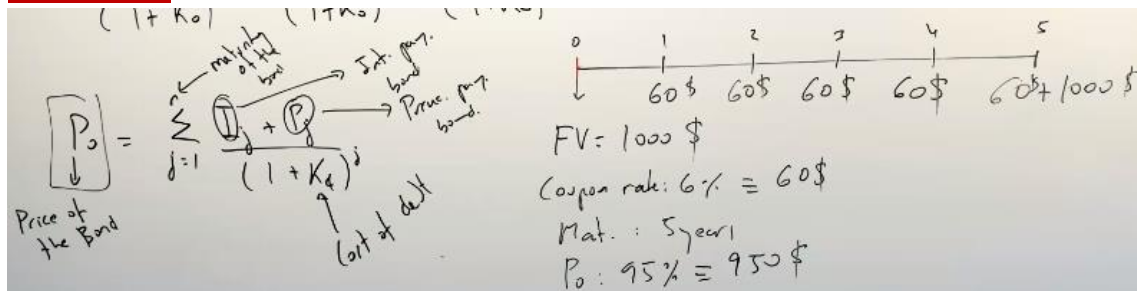 (1+K₀) (1+K₀)
maturity of the bond
Int. pay. bond
Princ. pay. bond.
P₀ = n Σ j=1 I_j + P_j / (1 + K_d)^j
Price of the Bond
Cost of debt
0 1 2 3 4 5
60$ 60$ 60$ 60$ 60$+1000$
FV= 1000 $
Coupon rate: 6% ≡ 60$
Mat. : 5years
P₀ : 95% ≡ 950$